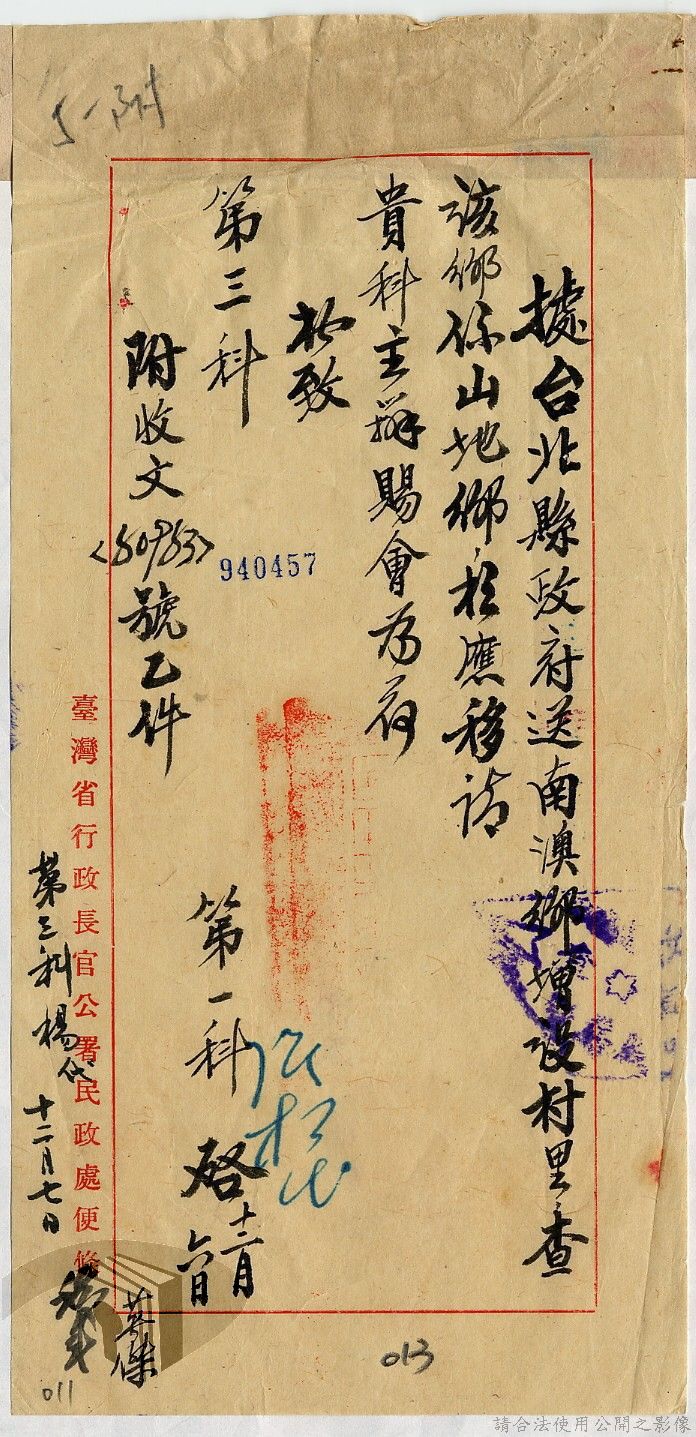 5-附
據台北縣政府送南澳鄉增設村里查
該鄉係山地鄉於應移請
貴科主辦賜會為荷
此致
第三科
附收文
<60983>
號乙件
940457
第一科
啓
十二月
六日
臺灣省行政長官公署民政處便條
第三科楊代
十二月七日
英傑
011
013
請合法使用公開之影像